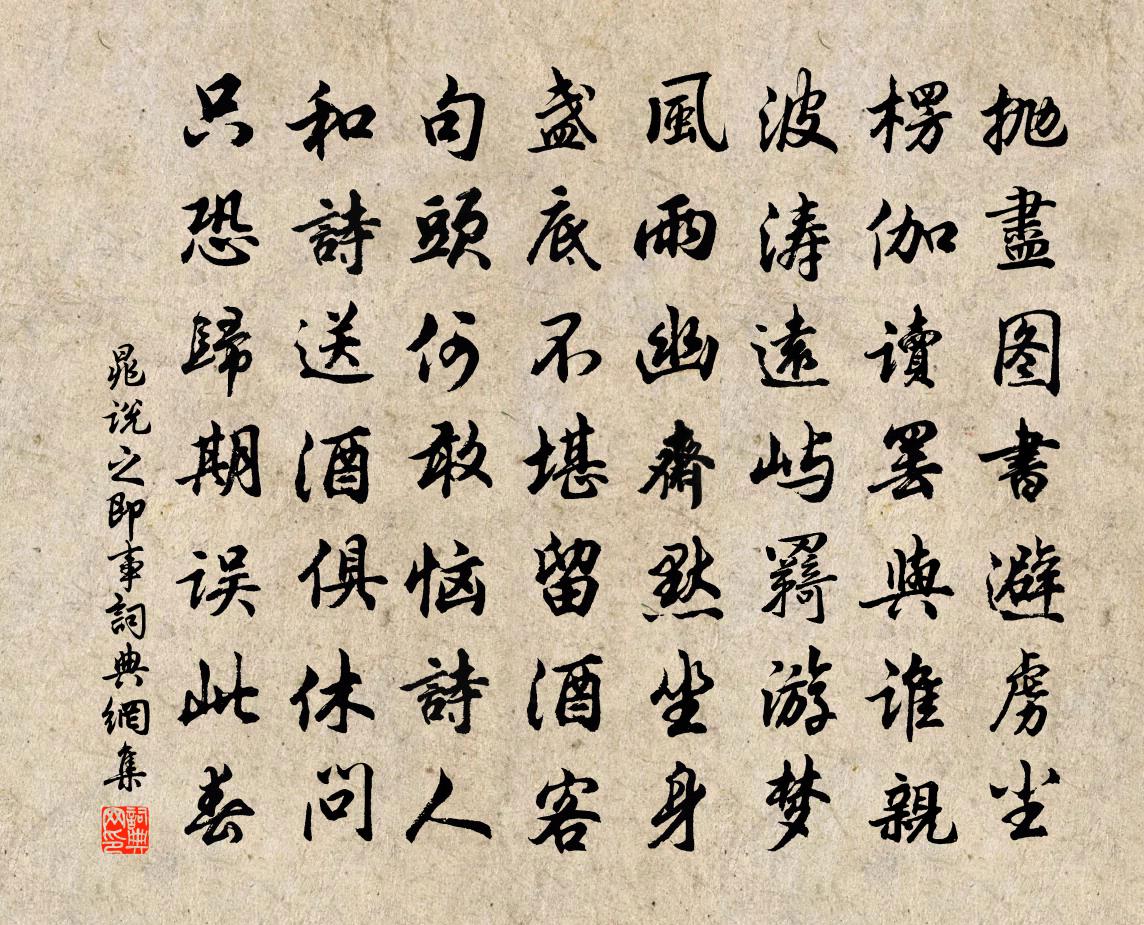 抛盡图書避虏尘
楞伽讀罢與谁親
波涛遠屿羁游梦
風雨幽齋默坐身
盏底不堪留酒客
句頭何敢恼詩人
和詩送酒俱休問
只恐歸期误此春
晁说之即事詞典網集
詞典网印